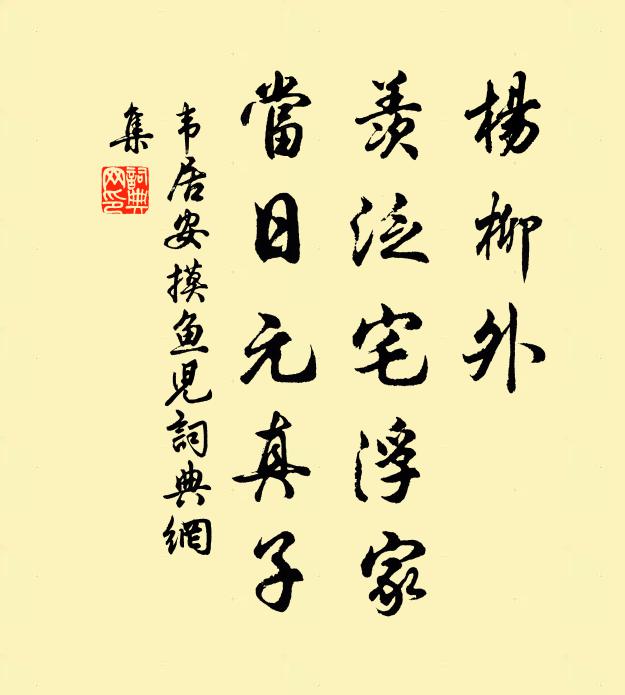 楊柳外
羨泛宅浮家
當日元真子
韦居安摸鱼児詞典網
集
詞典
网印